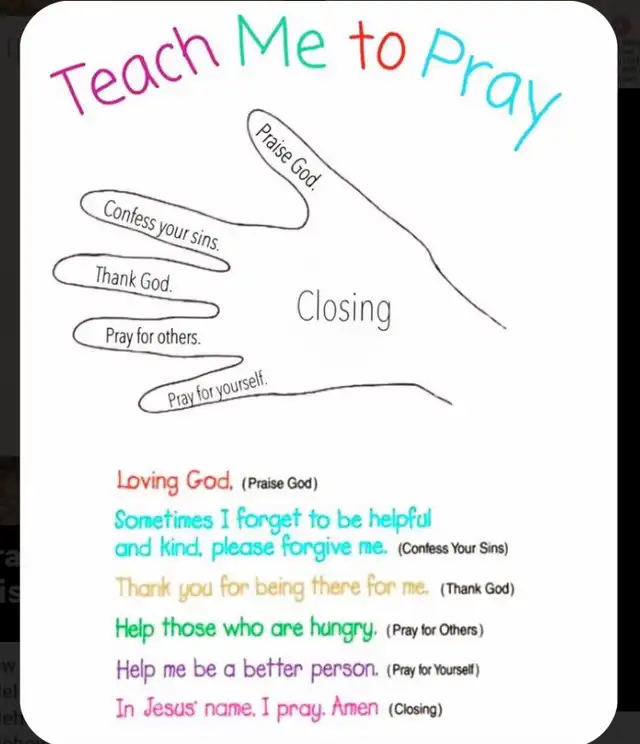 Teach Me to Pray
Praise God.
Confess your sins.
Thank God.
Pray for others.
Pray for yourself.
Closing
Loving God, (Praise God)
Sometimes I forget to be helpful
and kind, please forgive me. (Confess Your Sins)
Thank you for being there for me. (Thank God)
Help those who are hungry. (Pray for Others)
Help me be a better person. (Pray for Yourself)
In Jesus' name, I pray. Amen (Closing)